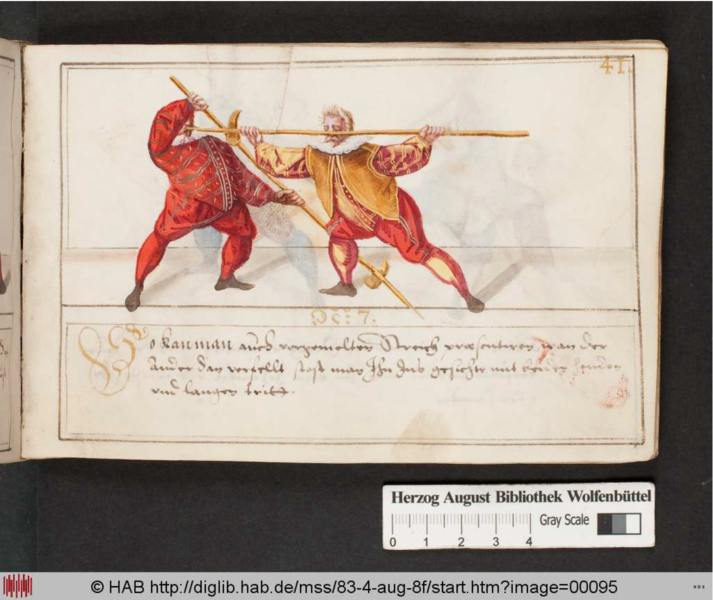 41.
7.
So kan man auch vorgemelten Streich præsentiren, wan der
ander den verfelt stost man Ihn Ins gesichte mit beiden henden
vnd langen tritt.
Herzog August Bibliothek Wolfenbüttel
Gray Scale
0 1 2 3 4
© HAB http://diglib.hab.de/mss/83-4-aug-8f/start.htm?image=00095